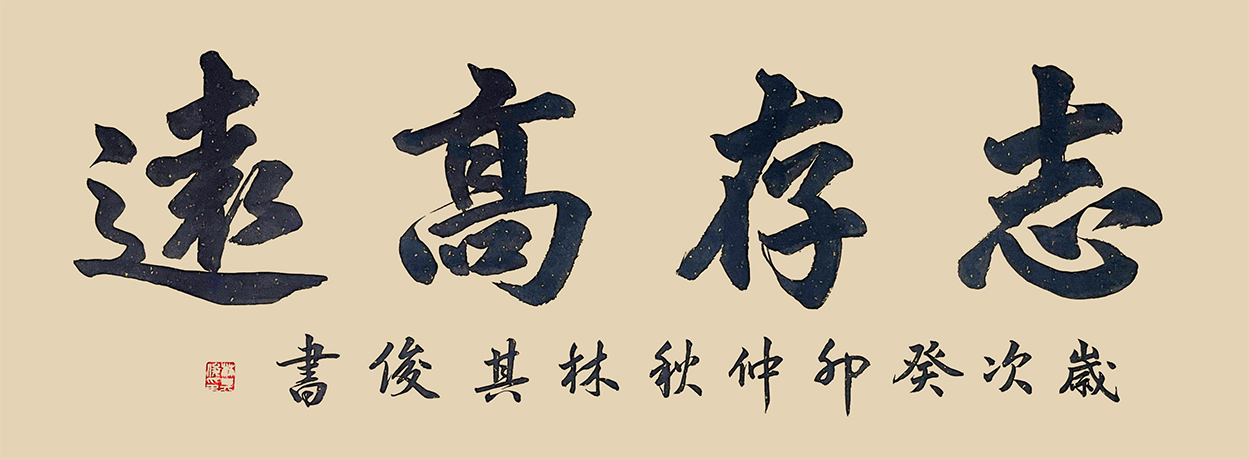 志存高遠
歲次癸卯仲秋林其俊書